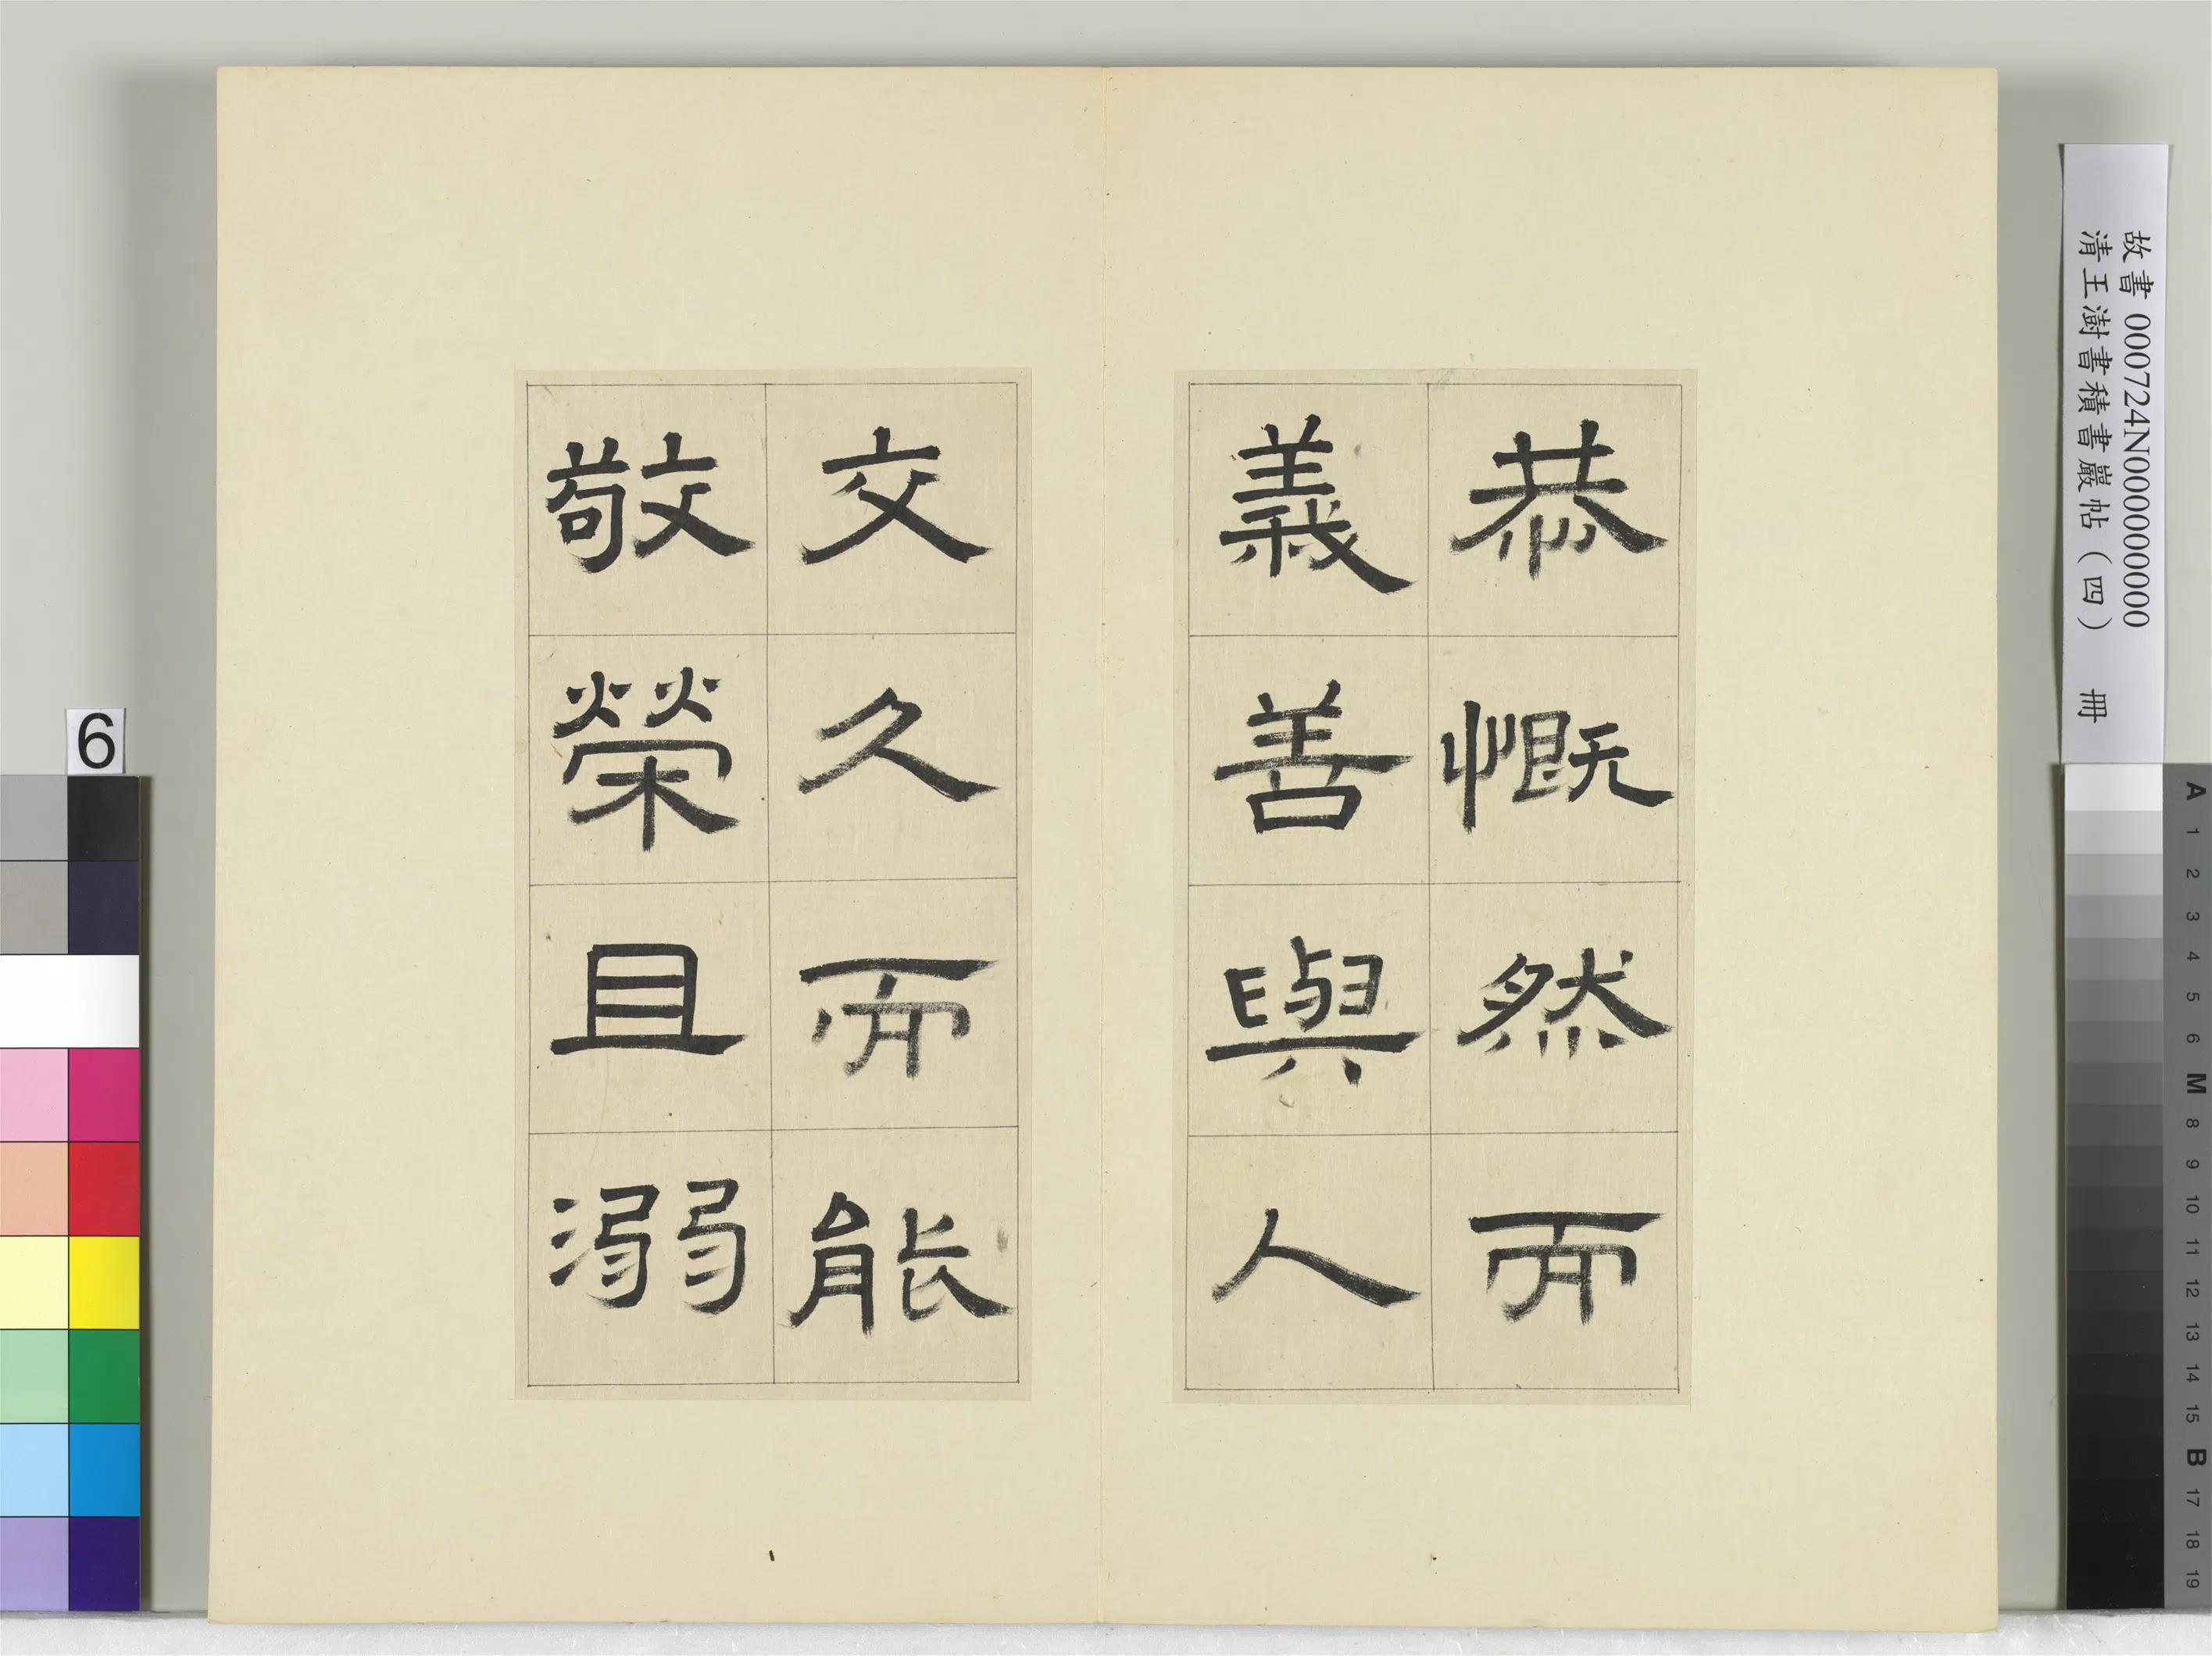 恭慨然而
義善與人
交久而能
敬榮且溺
故書 000724N000000000
清王澍書積書巖帖（四） 冊
6
A
1
2
3
4
5
6
M
8
9
10
11
12
13
14
15
B
17
18
19